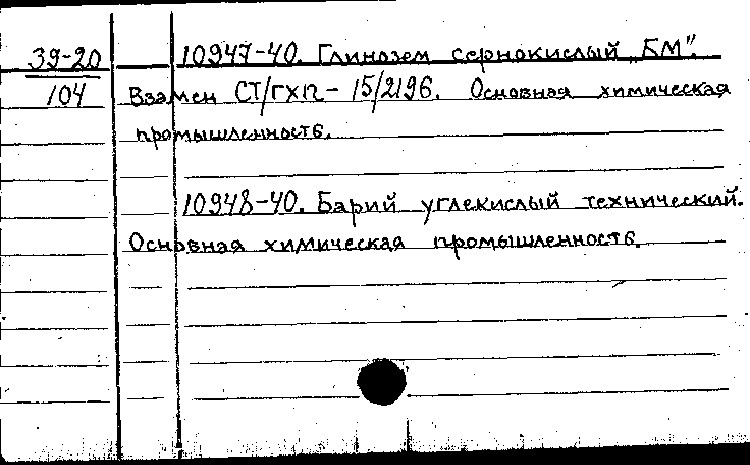 39-20
104
10947-40. Глинозем сернокислый „БМ".
Взамен СТ/ГХП- 15/2196. Основная химическая
промышленность.
10948-40. Барий углекислый технический.
Основная химическая промышленность.